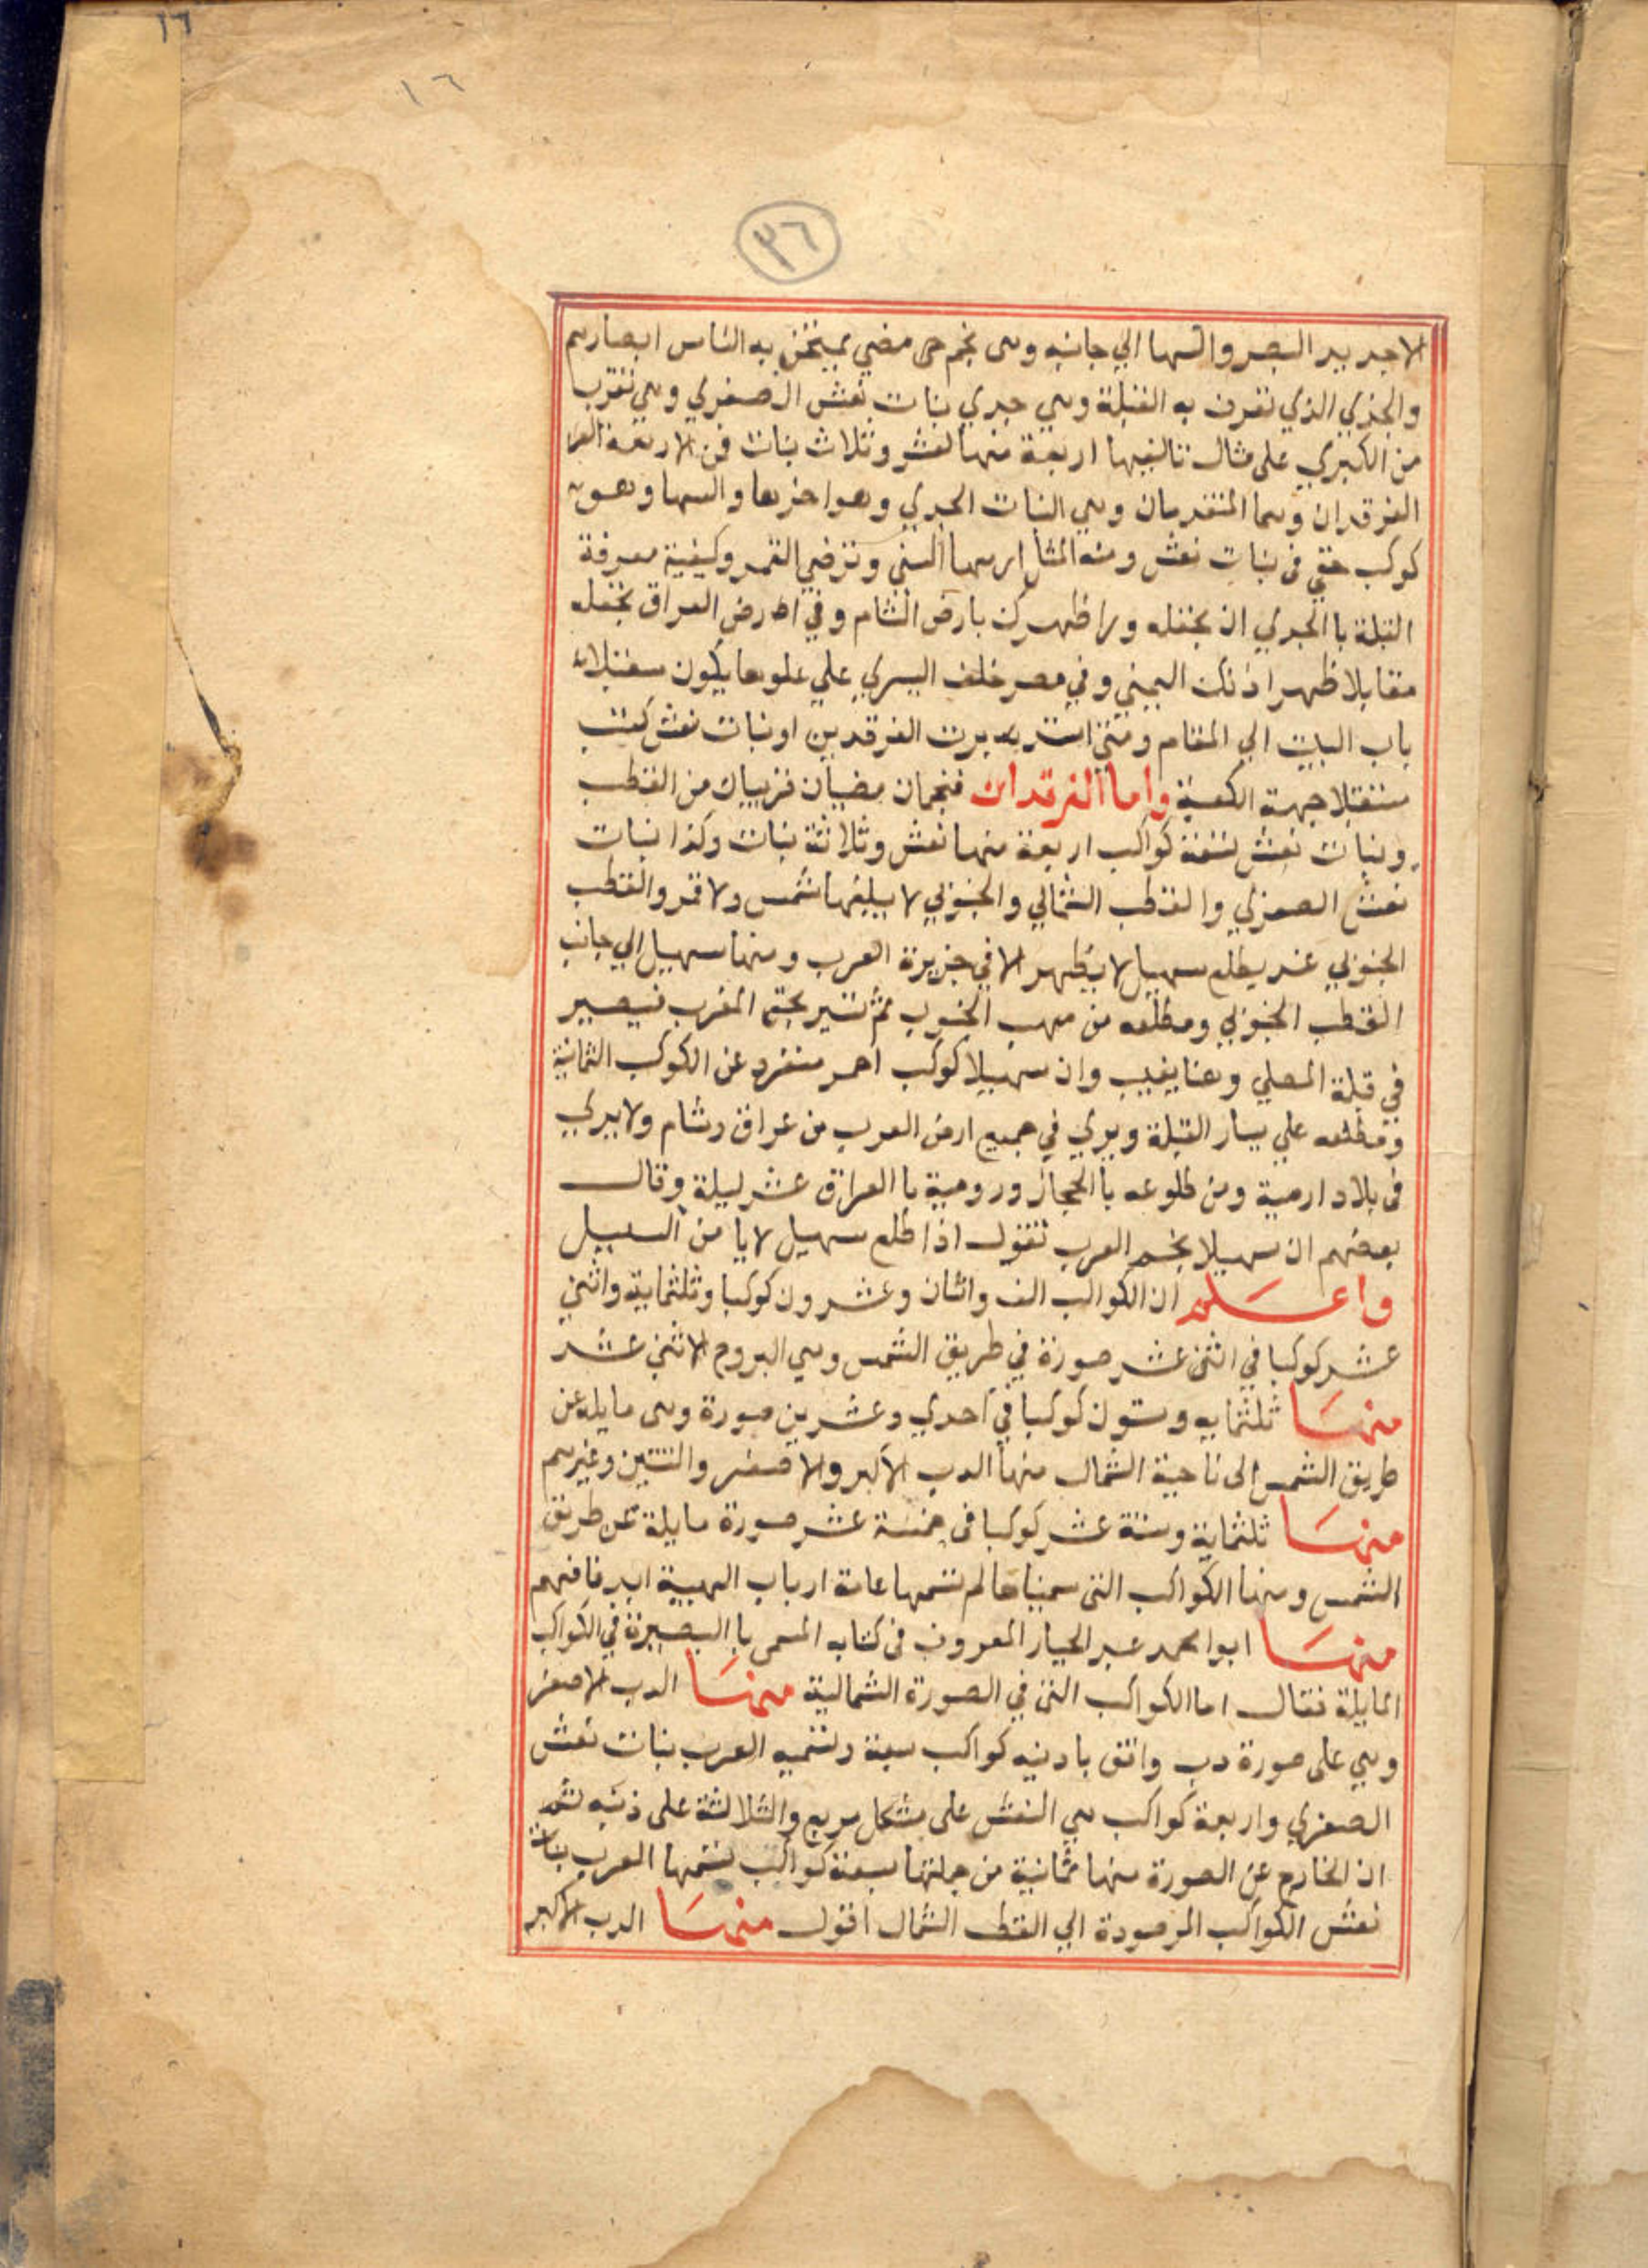 ١٦
١٦
٣٦
الاجديد البصر والسها الي جانبه وهى نجم خى مضي يمتحن به الناس ابصارهم
والجدي الذي تعرف به القبلة وهي جدي بنات نعش الصغري وهي تقرب
من الكبري على مثال تاليفها اربعة منها نعش وثلاث بنات فن الاربعة
الفرقدان وهما المتقدمان وهي البنات الجدي وهو اخرها والسها وهو
كوكب خفي فى بنات نعش ومنه المثل اريها السنى وترضي القمر وكيفية معرفة
القبلة با الجدي ان يجعله ورا ظهرك بارض الشام وفي ارض العراق تجعله
مقابلا ظهر اذنك اليمني وفي مصر خلف اليسري علي علوها يكون مستقبلا
باب البيت الي المقام ومتي استدبرت الفرقدين او بنات نعش كنت
مستقبلا جهة الكعبة واما الفرقدان فنجمان مضيان قريبان من القطب
وبنات نعش سبعة كواكب اربعة منها نعش وثلاثة بنات وكذا بنات
نعش الصغري والقطب الشمالي والجنوبي لا يليها شمس ولا قمر والقطب
الجنوبي عند يطلع سهيل لا يظهر الا في جزيرة العرب ومنها سهيل الي جانب
القطب الجنوبي ومطلعه من مهب الجنوب ثم تسير المغرب فيصير
في قبلة المصلي وهنا يغيب وان سهيلا كوكب احمر منفرد عن الكوكب الثمانية
ومطلعه علي يسار القبلة ويري في جميع ارض العرب من عراق وشام ولا يري
فى بلاد ارمية ومن طلوعه با الحجاز ورومية با العراق عشر ليلة وقال
بعضهم ان سهيلا نجم العرب تقول اذا طلع سهيل لا يا من السبيل
واعلم ان الكواكب الف واثنان وعشرون كوكبا وثلثماية واثني
عشر كوكبا في اثنى عشر صورة في طريق الشمس وهي البروج الاثني عشر
منها ثلثمايه وستون كوكبا في احدي وعشرين صورة وهى مايله عن
طريق الشمس الى ناحية الشمال منها الدب الاكبر والاصغر والتنين وغيرهم
منها ثلثماية وستة عشر كوكبا فى خمسة عشر صورة مايلة عن طريق
الشمس ومنها الكواكب التى سميناها لم تسمها عامة ارباب الهيية ابدا فافهم
منها ابوا محمد عبد الجبار المعروف فى كتابه المسمى با البصيرة في الكواكب
المايلة فقال اما الكواكب التى في الصورة الشمالية منها الدب الاصغر
وهي على صورة دب واقف باديه كواكب سبعة وتسميه العرب بنات نعش
الصغري واربعة كواكب هي النعش على شكل مربع والثلاثة على ذنبه ثم
ان الخارج عن الصورة منها ثمانية من جملتها سبعة كواكب تسمها العرب بنات
نعش الكواكب المرصودة الي القطب الشمال اقول منها الدب الاكبر